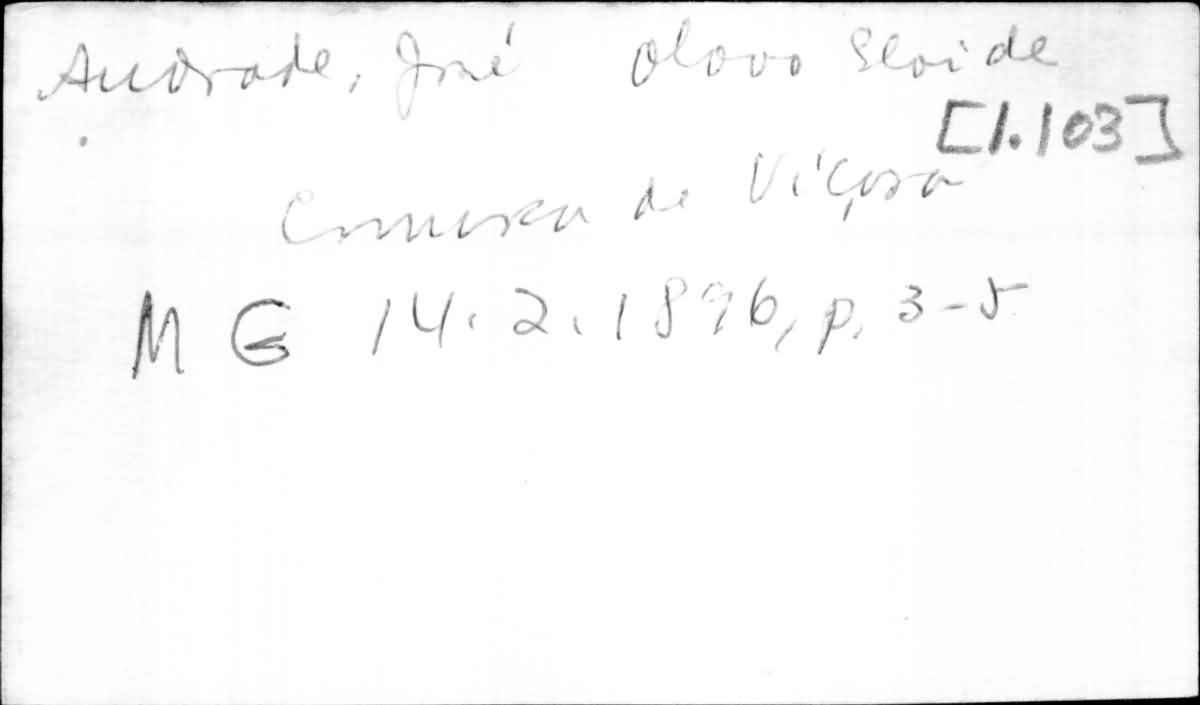 Andrade, José Olavo Eloi de
[1.103]
Comarca de Viçosa
M G 14.2.1896, p. 3-5